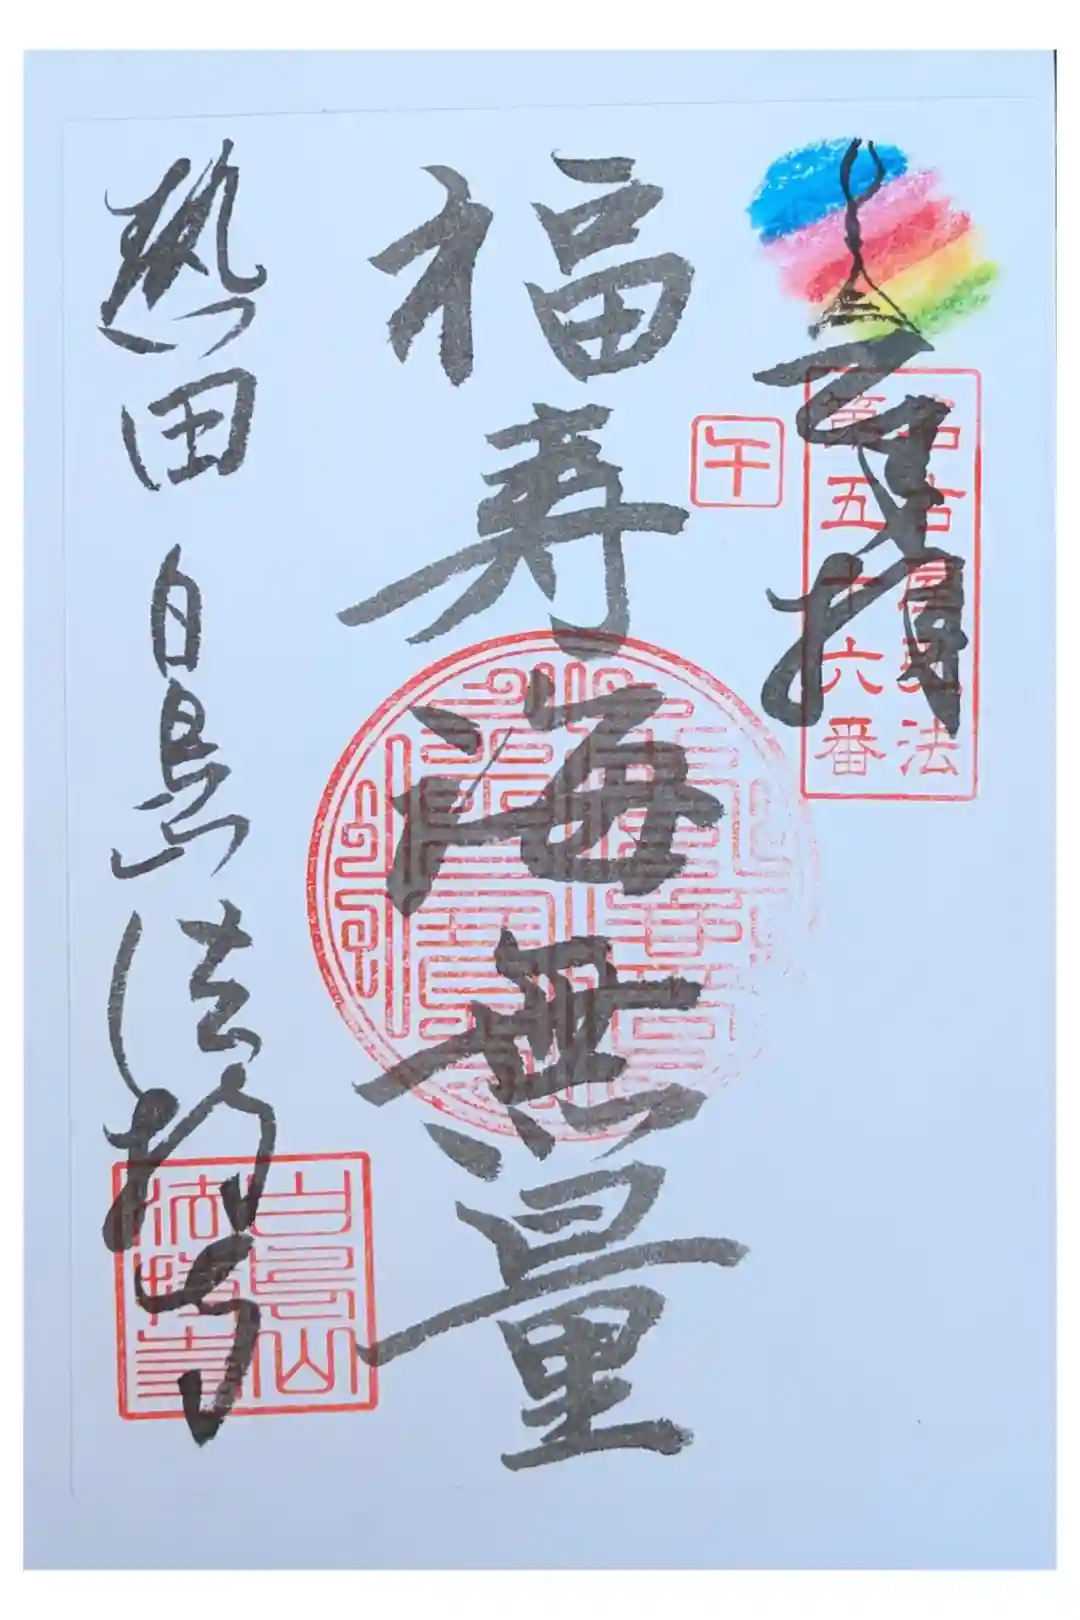 名古屋弘法
第五十六番
午
福寿海無量
熱田 白鳥 法持寺
白鳥山
法持寺